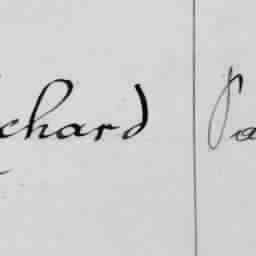 chard Pa